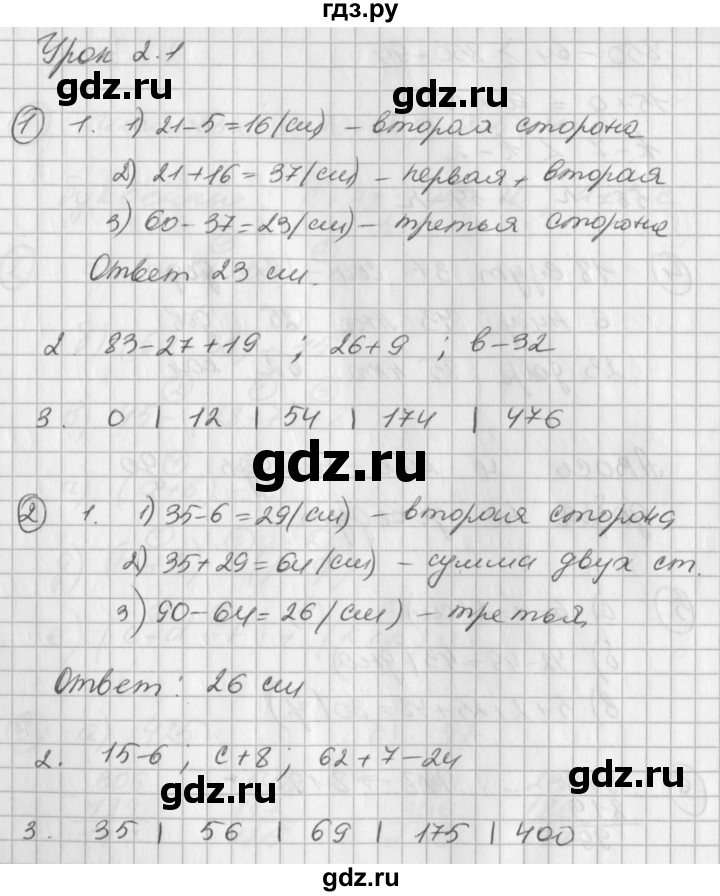 гдз.ру
Урок 2.1
gdz.ru gdz.ru
1 1. 1) 21-5=16(см) – вторая сторона
2) 21+16=37(см) – первая, вторая
3) 60-37=23(см) – третья сторона
Ответ 23 см.
gdz.ru gdz.ru
2 83-27+19 ; 26+9 ; в-32
3. 0 | 12 | 54 | 174 | 476
gdz.ru
2 1. 1) 35-6=29(см) – вторая сторона,
2) 35+29=64(см) – сумма двух ст.
3) 90-64=26(см) – третья,
gdz.ru gdz.ru
Ответ: 26 см
2. 15-6 ; с+8 ; 62+7-24
gdz.ru gdz.ru
3. 35 | 56 | 69 | 175 | 400
gdz.ru